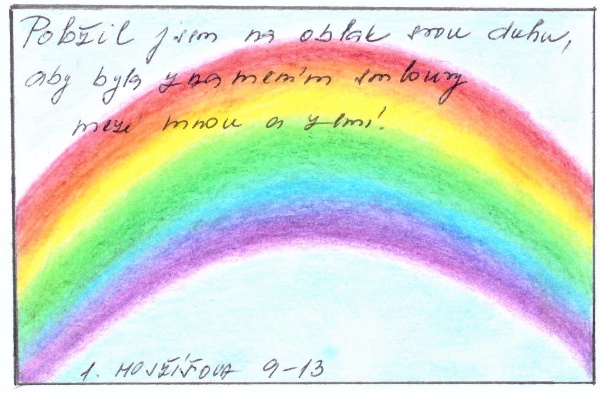 Položil jsem na oblak svou duhu,
aby byla znamením smlouvy
mezi mnou a zemí.
1. MOJŽÍŠOVA 9-13